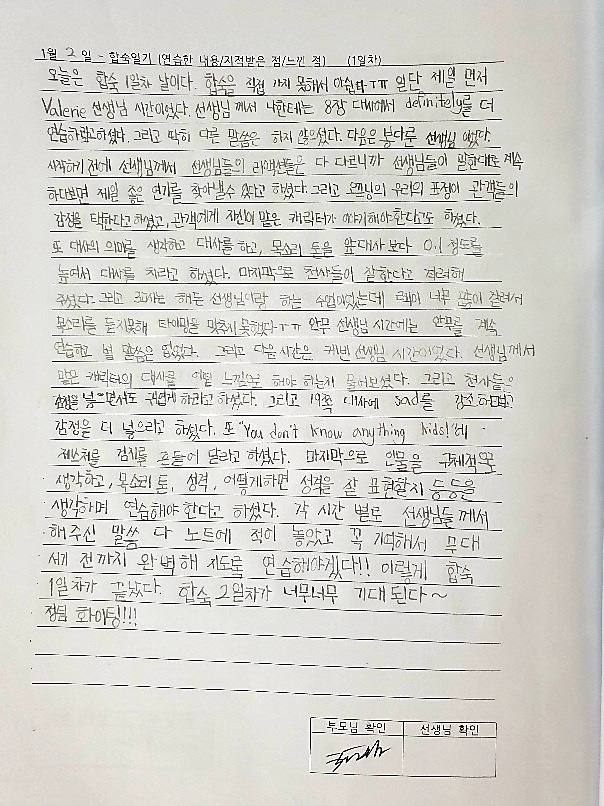 1월 2일 - 합숙일기 (연습한 내용/지적받은 점/느낀 점) (1일차)
오늘은 합숙 1일차 날이다. 합숙을 직접 가지 못해서 아쉽다ㅠㅠ 일단 제일 먼저
Valerie 선생님 시간이었다. 선생님께서 나한테는 8장 대사에서 definitely를 더
연습하라고하셨다. 그리고 딱히 다른 말씀은 하지 않으셨다. 다음은 봉다룬 선생님 이었다.
시작하기 전에 선생님께서 선생님들의 리액션들은 다 다르니까 선생님들이 말한대로 계속
하다보면 제일 좋은 연기를 찾아낼수 있다고 하셨다. 그리고 오프닝의 우리의 표정이 관객들의
감정을 택한다고 하셨고, 관객에게 자신이 맡은 캐릭터가 이야기해야한다고도 하셨다.
또 대사의 의미를 생각하고 대사를 하고, 목소리 톤을 앞대사 보다 0.1 정도를
높여서 대사를 치라고 하셨다. 마지막으로 천사들이 잘한다고 격려해
주셨다. 그리고 는 해든 선생님이랑 하는 수업이었는데 렉이 너무 많이 걸려서
목소리를 듣지못해 타이밍을 맞추지 못했다ㅠㅠ 안무 선생님 시간에는 안무를 계속
연습하고 별 말씀은 없었다. 그리고 다음 시간은 케빈 선생님 시간이었다. 선생님께서
맡은 캐릭터의 대사를 어떤 느낌으로 해야 하는지 물어보셨다. 그리고 천사들은
넣으면서도 귀엽게 하라고 하셨다. 그리고 19쪽 대사에 sad를 강조하면서
감정을 더 넣으라고 하셨다. 또 "You don't know anything kids!"에
제스처를 검지를 흔들어 달라고 하셨다. 마지막으로 인물을 구체적으로
생각하고, 목소리 톤, 성격, 어떻게하면 성격을 잘 표현할지 등등을
생각하며 연습해야 한다고 하셨다. 각 시간 별로 선생님들 께서
해주신 말씀 다 노트에 적어 놓았고 꼭 기억해서 무대
서기 전까지 완벽해 지도록 연습해야겠다!! 이렇게 합숙
1일차가 끝났다. 합숙 2일차가 너무너무 기대된다~
정팀 화이팅!!!
부모님 확인 선생님 확인